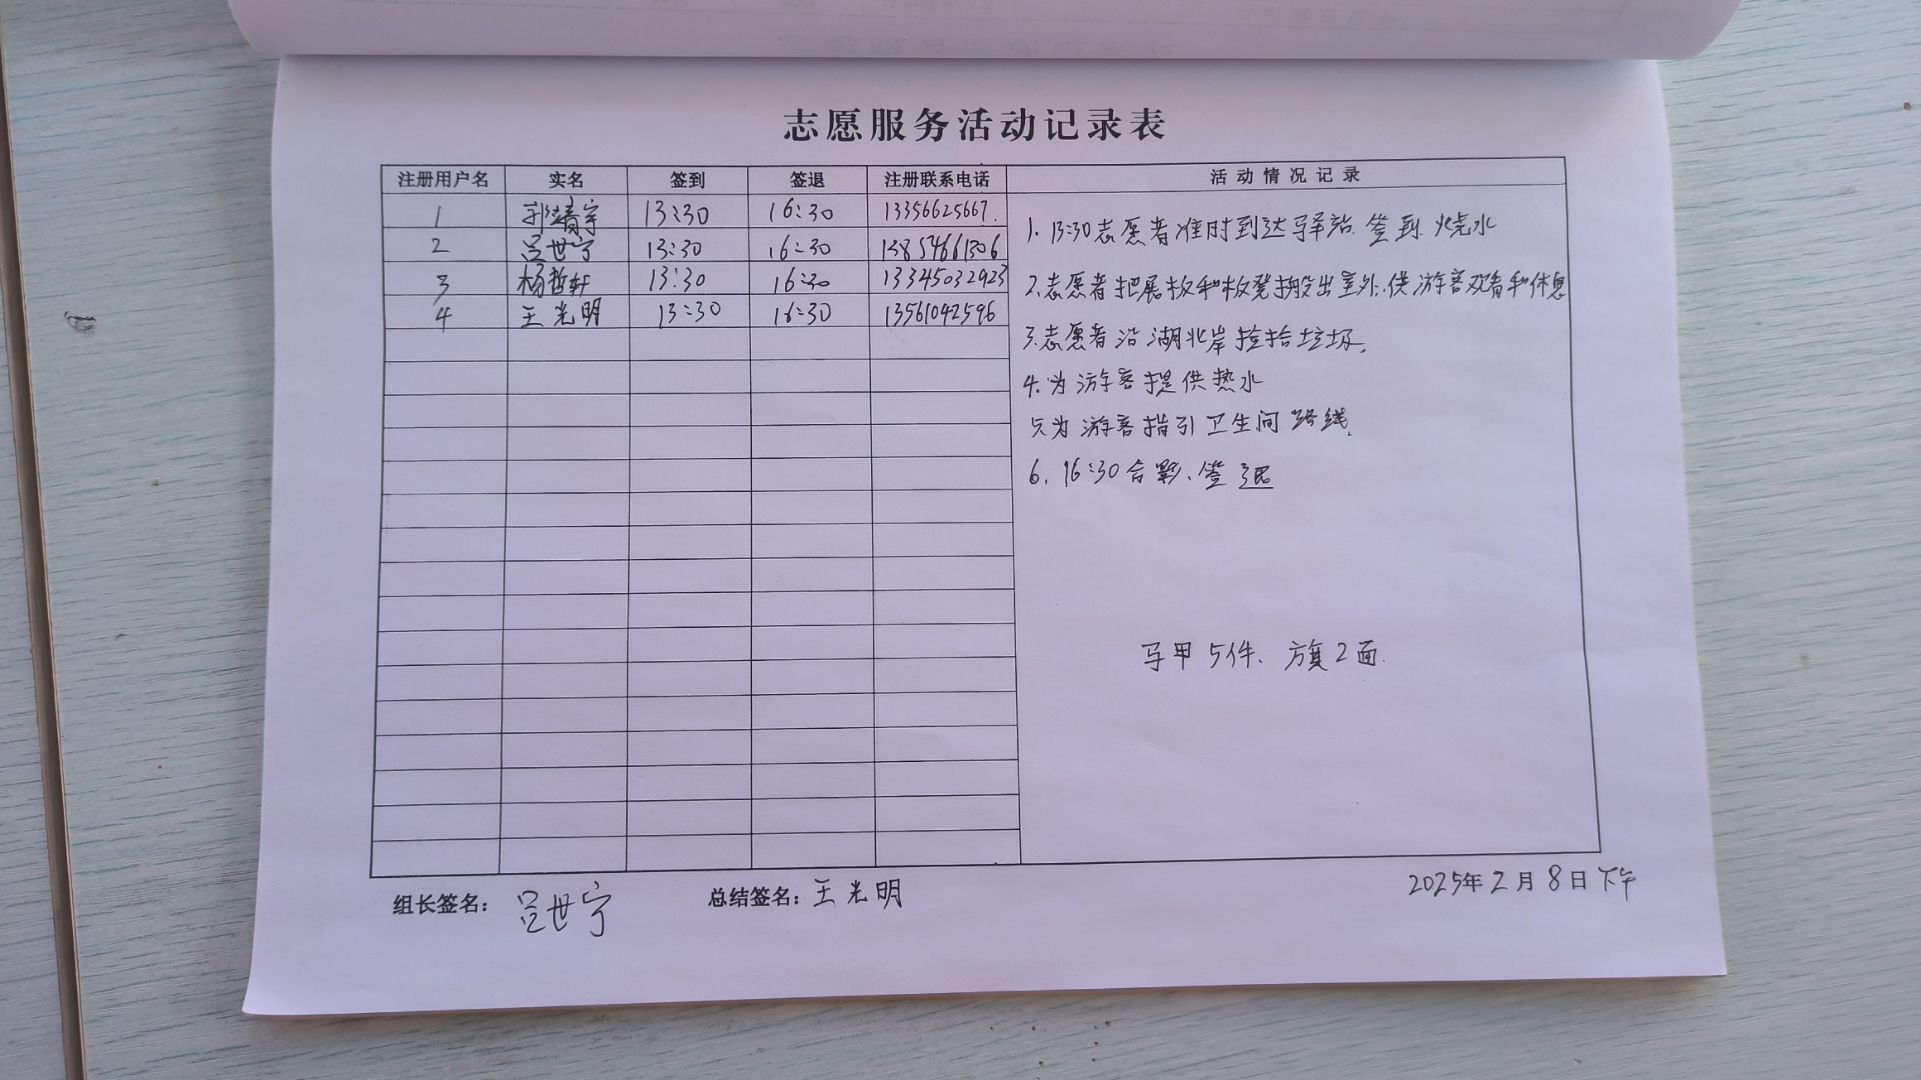 志愿服务活动记录表
注册用户名 实名 签到 签退 注册联系电话 活动情况记录
1 邢靖宇 13:30 16:30 13356625667.
2 吕世宁 13:30 16:30 13854661306
3 杨哲轩 13:30 16:30 13345032923
4 王光明 13:30 16:30 13561042596
1. 13:30志愿者准时到达驿站.签到.烧水
2.志愿者把展板和板凳搬出室外.供游客观看和休息
3.志愿者沿湖北岸捡拾垃圾.
4.为游客提供热水
5为游客指引卫生间路线.
6. 16:30合影.签退
马甲5件. 旗2面.
组长签名: 吕世宁 总结签名: 王光明 2025年2月8日下午